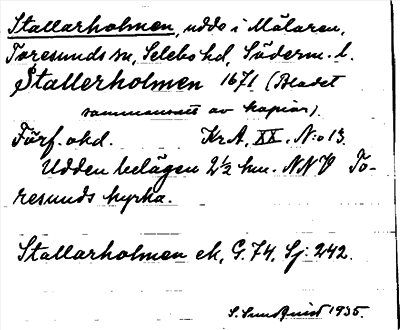 Stallarholmen, udde i Mälaren,
Toresunds sn, Selebo hd, Söderm. l.
Stallerholmen 1671 (Bladet
sammansatt av kopior).
Förf. okd. Kr A, XX. N:o 13.
Udden belägen 2½ km. NNV To-
resunds kyrka.
Stallarholmen ek, G. 74, Sj: 242.
S. Sundquist 1935.